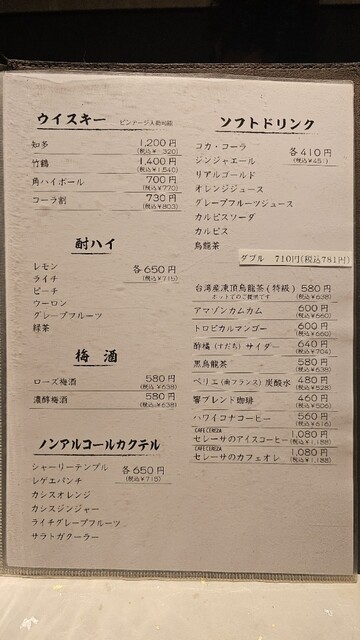 ウイスキー
知多 1,200円
竹鶴 1,400円
(税込¥1,540)
角ハイボール 700円
(税込¥770)
コーラ割 730円
(税込¥803)
酎ハイ
レモン 各650円
(税込¥715)
ライチ
ピーチ
ウーロン
グレープフルーツ
緑茶
梅酒
ローズ梅酒 580円
(税込¥638)
濃醇梅酒 580円
(税込¥638)
ノンアルコールカクテル
シャーリーテンプル 各650円
(税込¥715)
レゲエパンチ
カシスオレンジ
カシスジンジャー
ライチグレープフルーツ
サラトガクーラー
ソフトドリンク
コカ・コーラ 各410円
(税込¥451)
ジンジャエール
リアルゴールド
オレンジジュース
グレープフルーツジュース
カルピスソーダ
カルピス
烏龍茶
ダブル 710円(税込781円)
台湾産凍頂烏龍茶(特級) 580円
ホットでのご提供です (税込¥638)
アマゾンカムカム 600円
(税込¥660)
トロピカルマンゴー 600円
(税込¥660)
酢橘(すだち)サイダー 640円
(税込¥704)
黒烏龍茶 580円
(税込¥638)
ペリエ(南フランス)炭酸水 480円
(税込¥528)
響ブレンド珈琲 460円
(税込¥506)
ハワイコナコーヒー 560円
(税込¥616)
CAFE CEREZA
セレーサのアイスコーヒー 1,080円
(税込¥1,188)
CAFE CEREZA
セレーサのカフェオレ 1,080円
(税込¥1,188)